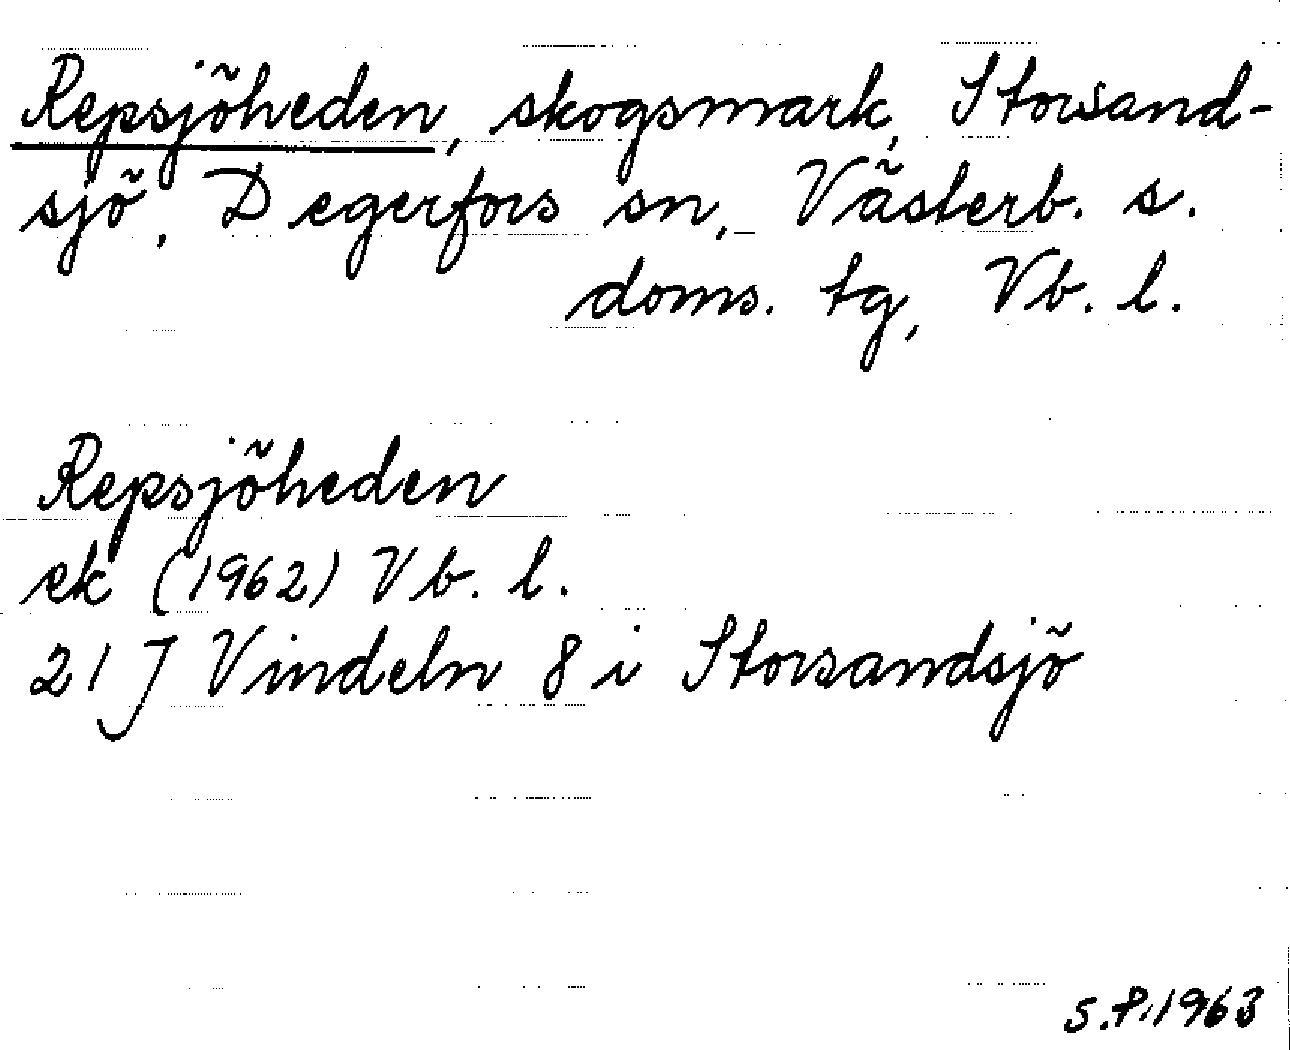 Repsjöheden, skogsmark, Storsand-
sjö, Degerfors sn, Västerb. s.
doms. tg, Vb. l.
Repsjöheden
ek (1962) Vb. l.
21J Vindeln 8 i Storsandsjö
S.P. 1963